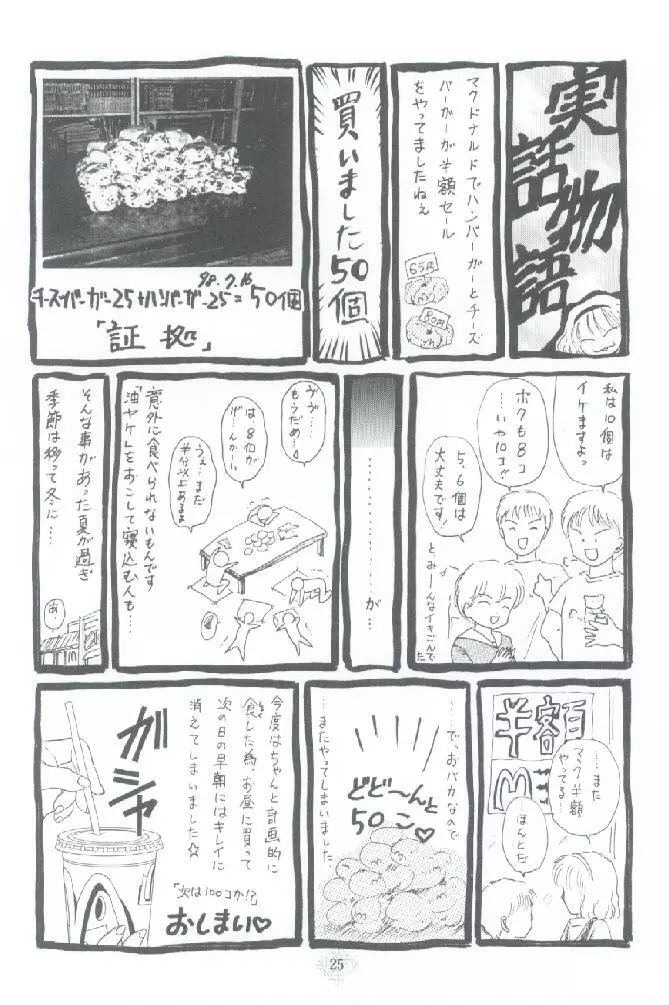 実話物語
マクドナルドでハンバーガーとチーズ
バーガーが半額セール
をやってましたねぇ
65円
80円
買いました50個
'98.7.16
チーズバーガー25+ハンバーガー25=50個
「証拠」
私は10個は
イケますよっ
ボクも8コ
…いや10コ!!
5、6個は
大丈夫です!
とみーんなイキごんでた
…………が…
ゔゔ…
もうだめ…
は8個が
げーんかい…
うぇ…まだ
半分以上あるよ
意外に食べられないもんです
「油ヤケ」をおこして寝込む人も…
そんな事があった夏が過ぎ
季節は移って冬に…
あ
半額
……また
マック半額
やってる
ほんとだ
……で、おバカなので
どど〜んと
50こ♡
…またやってしまいました
今度はちゃんと計画的に
食した為、お昼に買って
次の日の早朝にはキレイに
消えてしまいました☆
ガシャ
「次は100コか!?」
おしまい♡
25